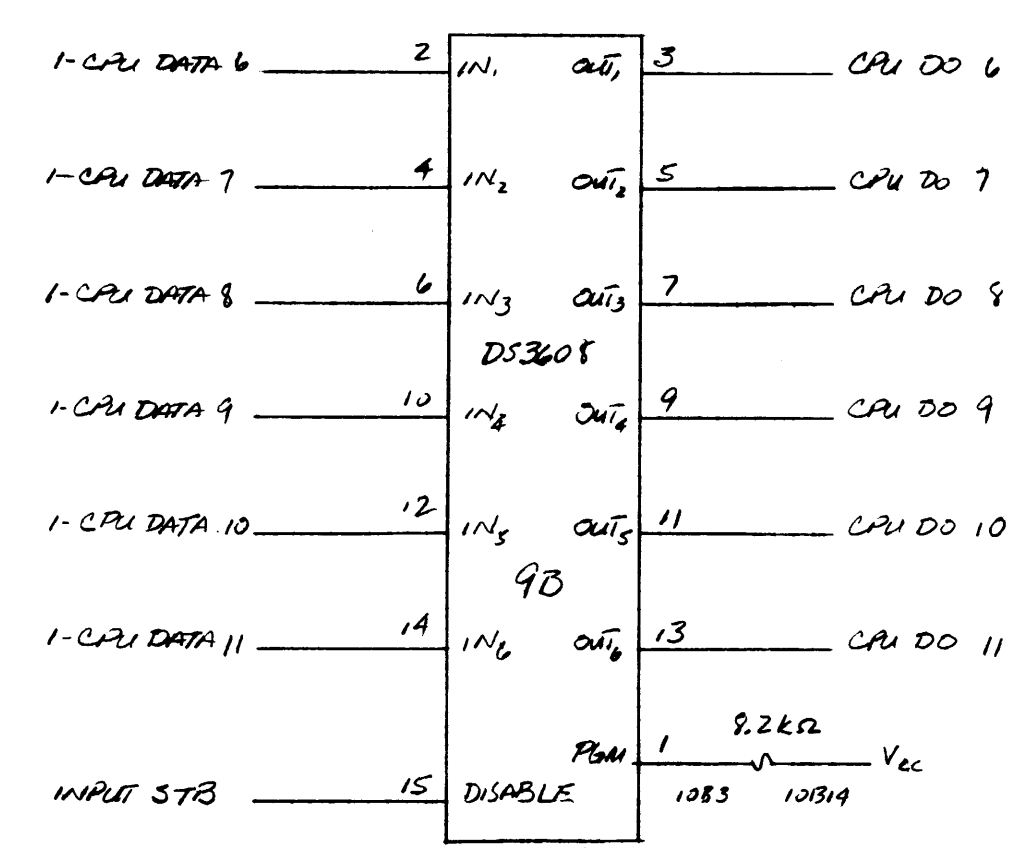 1-CPU DATA 6 2 IN1 OUT1 3 CPU DO 6
1-CPU DATA 7 4 IN2 OUT2 5 CPU DO 7
1-CPU DATA 8 6 IN3 OUT3 7 CPU DO 8
DS3608
1-CPU DATA 9 10 IN4 OUT4 9 CPU DO 9
1-CPU DATA 10 12 IN5 OUT5 11 CPU DO 10
9B
1-CPU DATA 11 14 IN6 OUT6 13 CPU DO 11
8.2KΩ
PGM 1 Vcc
INPUT STB 15 DISABLE 10B3 10B14